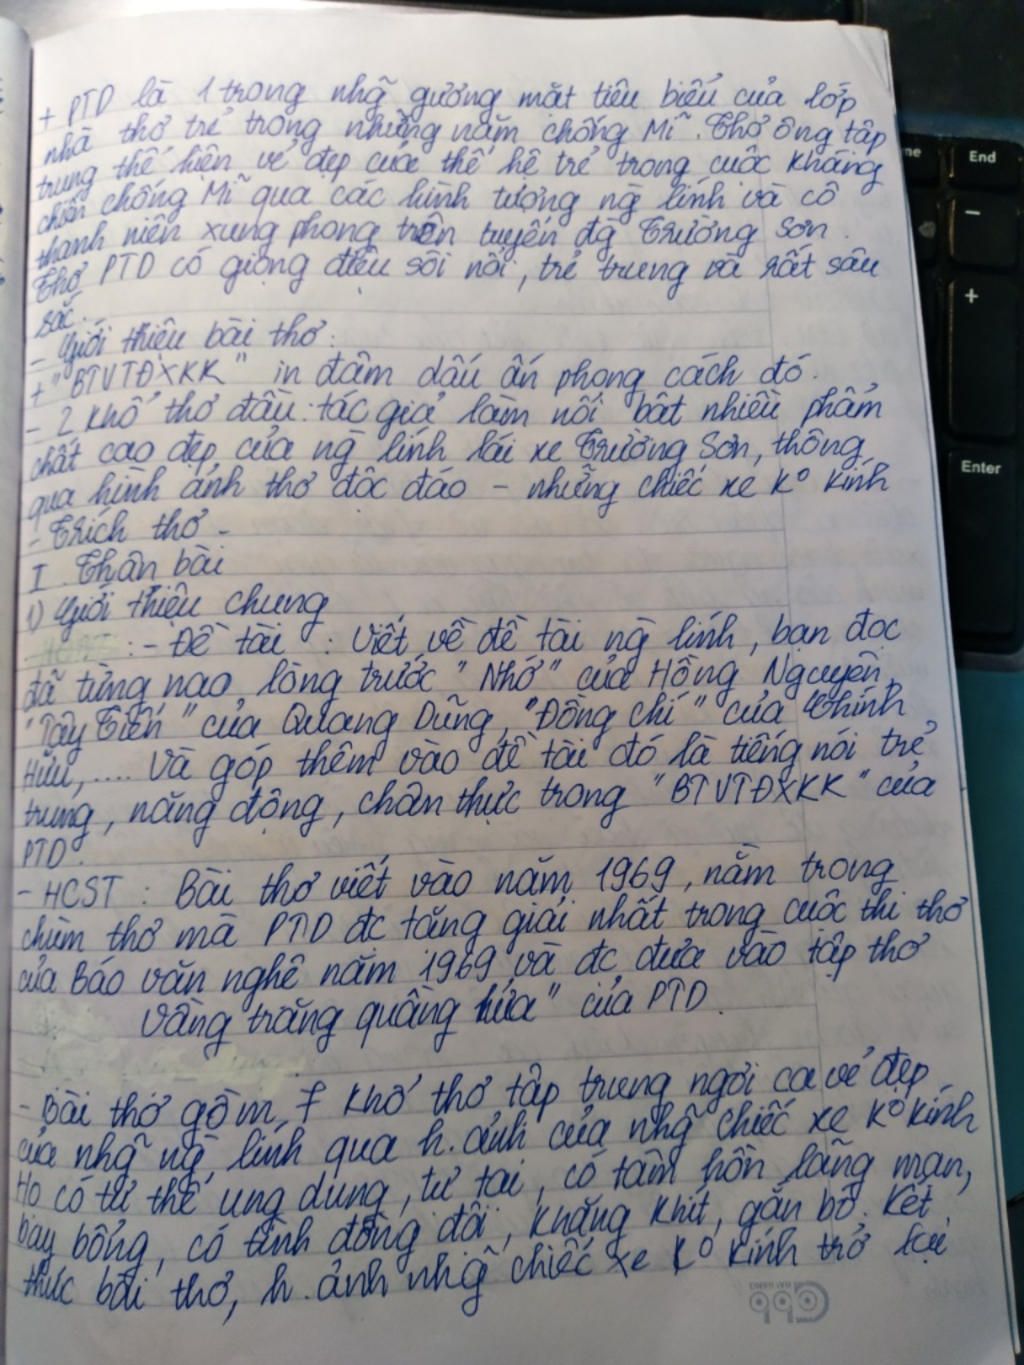 + PTD là 1 trong nhg̃ gương mặt tiêu biểu của lớp
nhà thơ trẻ trong những năm chống Mĩ. Thơ ông tập
trung thể hiện vẻ đẹp của thế hệ trẻ trong cuộc kháng
chiến chống Mĩ qua các hình tượng ng̀ lính và cô
thanh niên xung phong trên tuyến đg Trường Sơn.
Thơ PTD có giọng điệu sôi nổi, trẻ trung và rất sâu
sắc.
- Giới thiệu bài thơ:
+ "BTVTĐXKK" in đậm dấu ấn phong cách đó.
- 2 khổ thơ đầu: tác giả làm nổi bật nhiều phẩm
chất cao đẹp của ng̀ lính lái xe Trường Sơn, thông
qua hình ảnh thơ độc đáo - những chiếc xe k⁰ kính
- Trích thơ -
I. Thân bài
1) Giới thiệu chung
: - Đề tài : Viết về đề tài ng̀ lính, bạn đọc
đã từng nao lòng trước "Nhớ" của Hồng Nguyên,
"Tây Tiến" của Quang Dũng, "Đồng chí" của Chính
Hữu, .... Và góp thêm vào đề tài đó là tiếng nói trẻ
trung, năng động, chân thực trong "BTVTĐXKK" của
PTD.
- HCST : Bài thơ viết vào năm 1969, nằm trong
chùm thơ mà PTD đc tặng giải nhất trong cuộc thi thơ
của Báo văn nghệ năm 1969 và đc đưa vào tập thơ
Vầng trăng quầng lửa" của PTD.
- Bài thơ gồm 7 khổ thơ tập trung ngợi ca vẻ đẹp
của nhg̃ ng̀ lính qua h.ảnh của nhg̃ chiếc xe k⁰ kính
Họ có tư thế ung dung, tự tại, có tâm hồn lãng mạn,
bay bổng, có tình đồng đội, khăng khít, gắn bó. Kết
thúc bài thơ, h.ảnh nhg̃ chiếc xe k⁰ kính trở lại
End
-
+
Enter